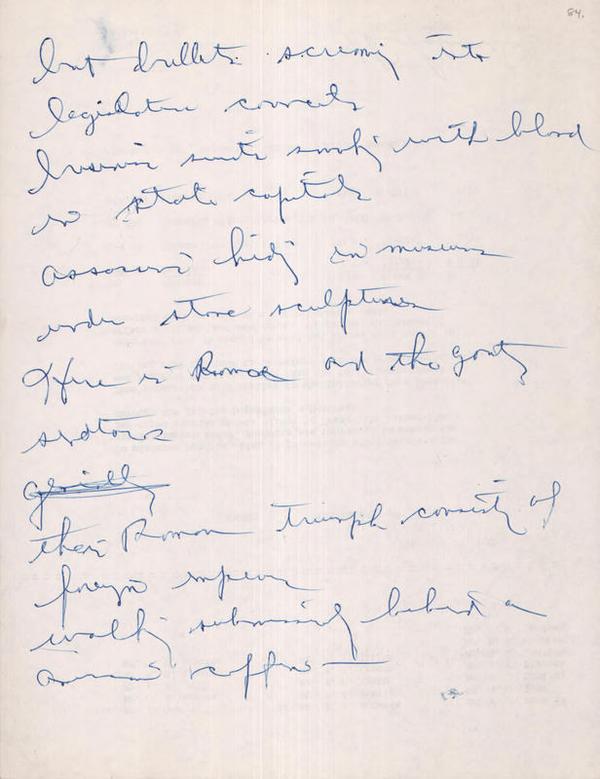 84.
but bullets screaming into
legislative councils
business suits smoking with blood
in state capitols
assassins hiding in museums
under stone sculptures
Here is Rome and the gouty
senators
their Roman triumph consisting of
foreign emperors
walking submissively behind a
coffin —